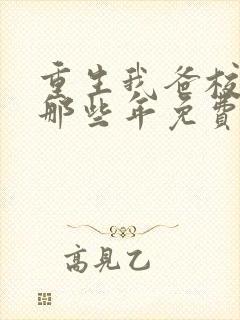 重生我爸校
那些年免費
高見乙